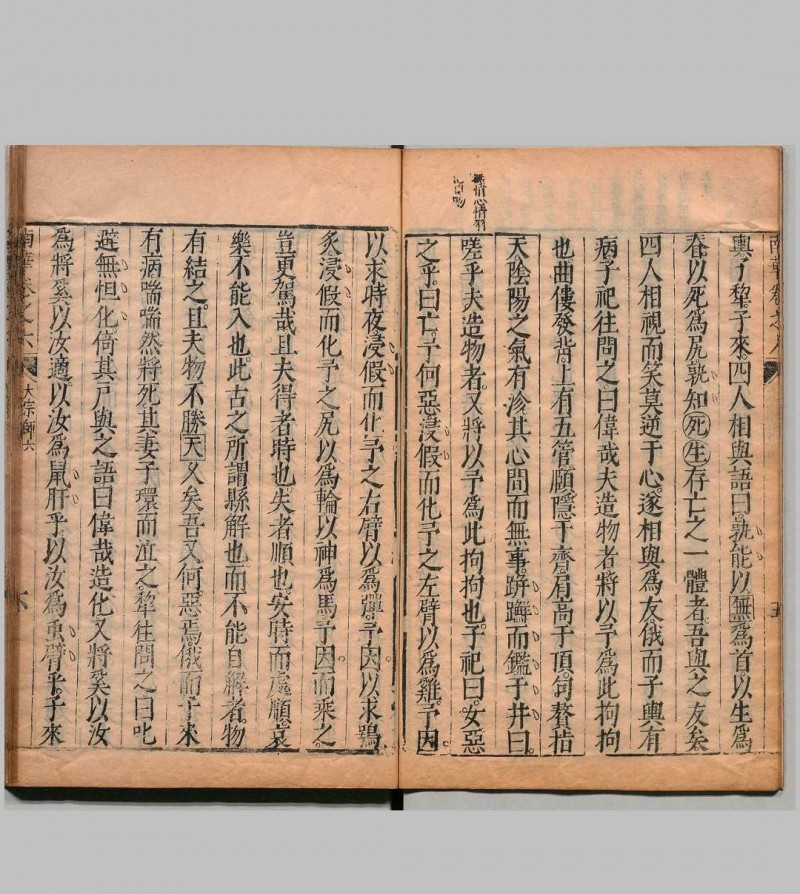 輿子犂子來四人相與語曰孰能以無爲首以生爲
脊以死爲尻孰知死生存亡之一體者吾與之友矣
四人相視而笑莫逆于心遂相與爲友俄而子輿有
病子祀往問之曰偉哉夫造物者將以予爲此拘拘
也曲僂發背上有五管頤隱于齊肩高于頂句贅指
天陰陽之氣有沴其心閒而無事跰𨇤而鑑于井曰
嗟乎夫造物者又將以予爲此拘拘也子祀曰女惡
之乎曰亡予何惡浸假而化予之左臂以爲雞予因
以求時夜浸假而化予之右臂以爲彈予因以求鴞
炙浸假而化予之尻以爲輪以神爲馬予因而乘之
豈更駕哉且夫得者時也失者順也安時而處順哀
樂不能入也此古之所謂縣解也而不能自解者物
有結之且夫物不勝天久矣吾又何惡焉俄而子來
有病喘喘然將死其妻子環而泣之犂往問之曰叱
避無怛化倚其戶與之語曰偉哉造化又將奚以汝
爲將奚以汝適以汝爲鼠肝乎以汝爲蟲臂乎子來
南華卷之六
大宗師六